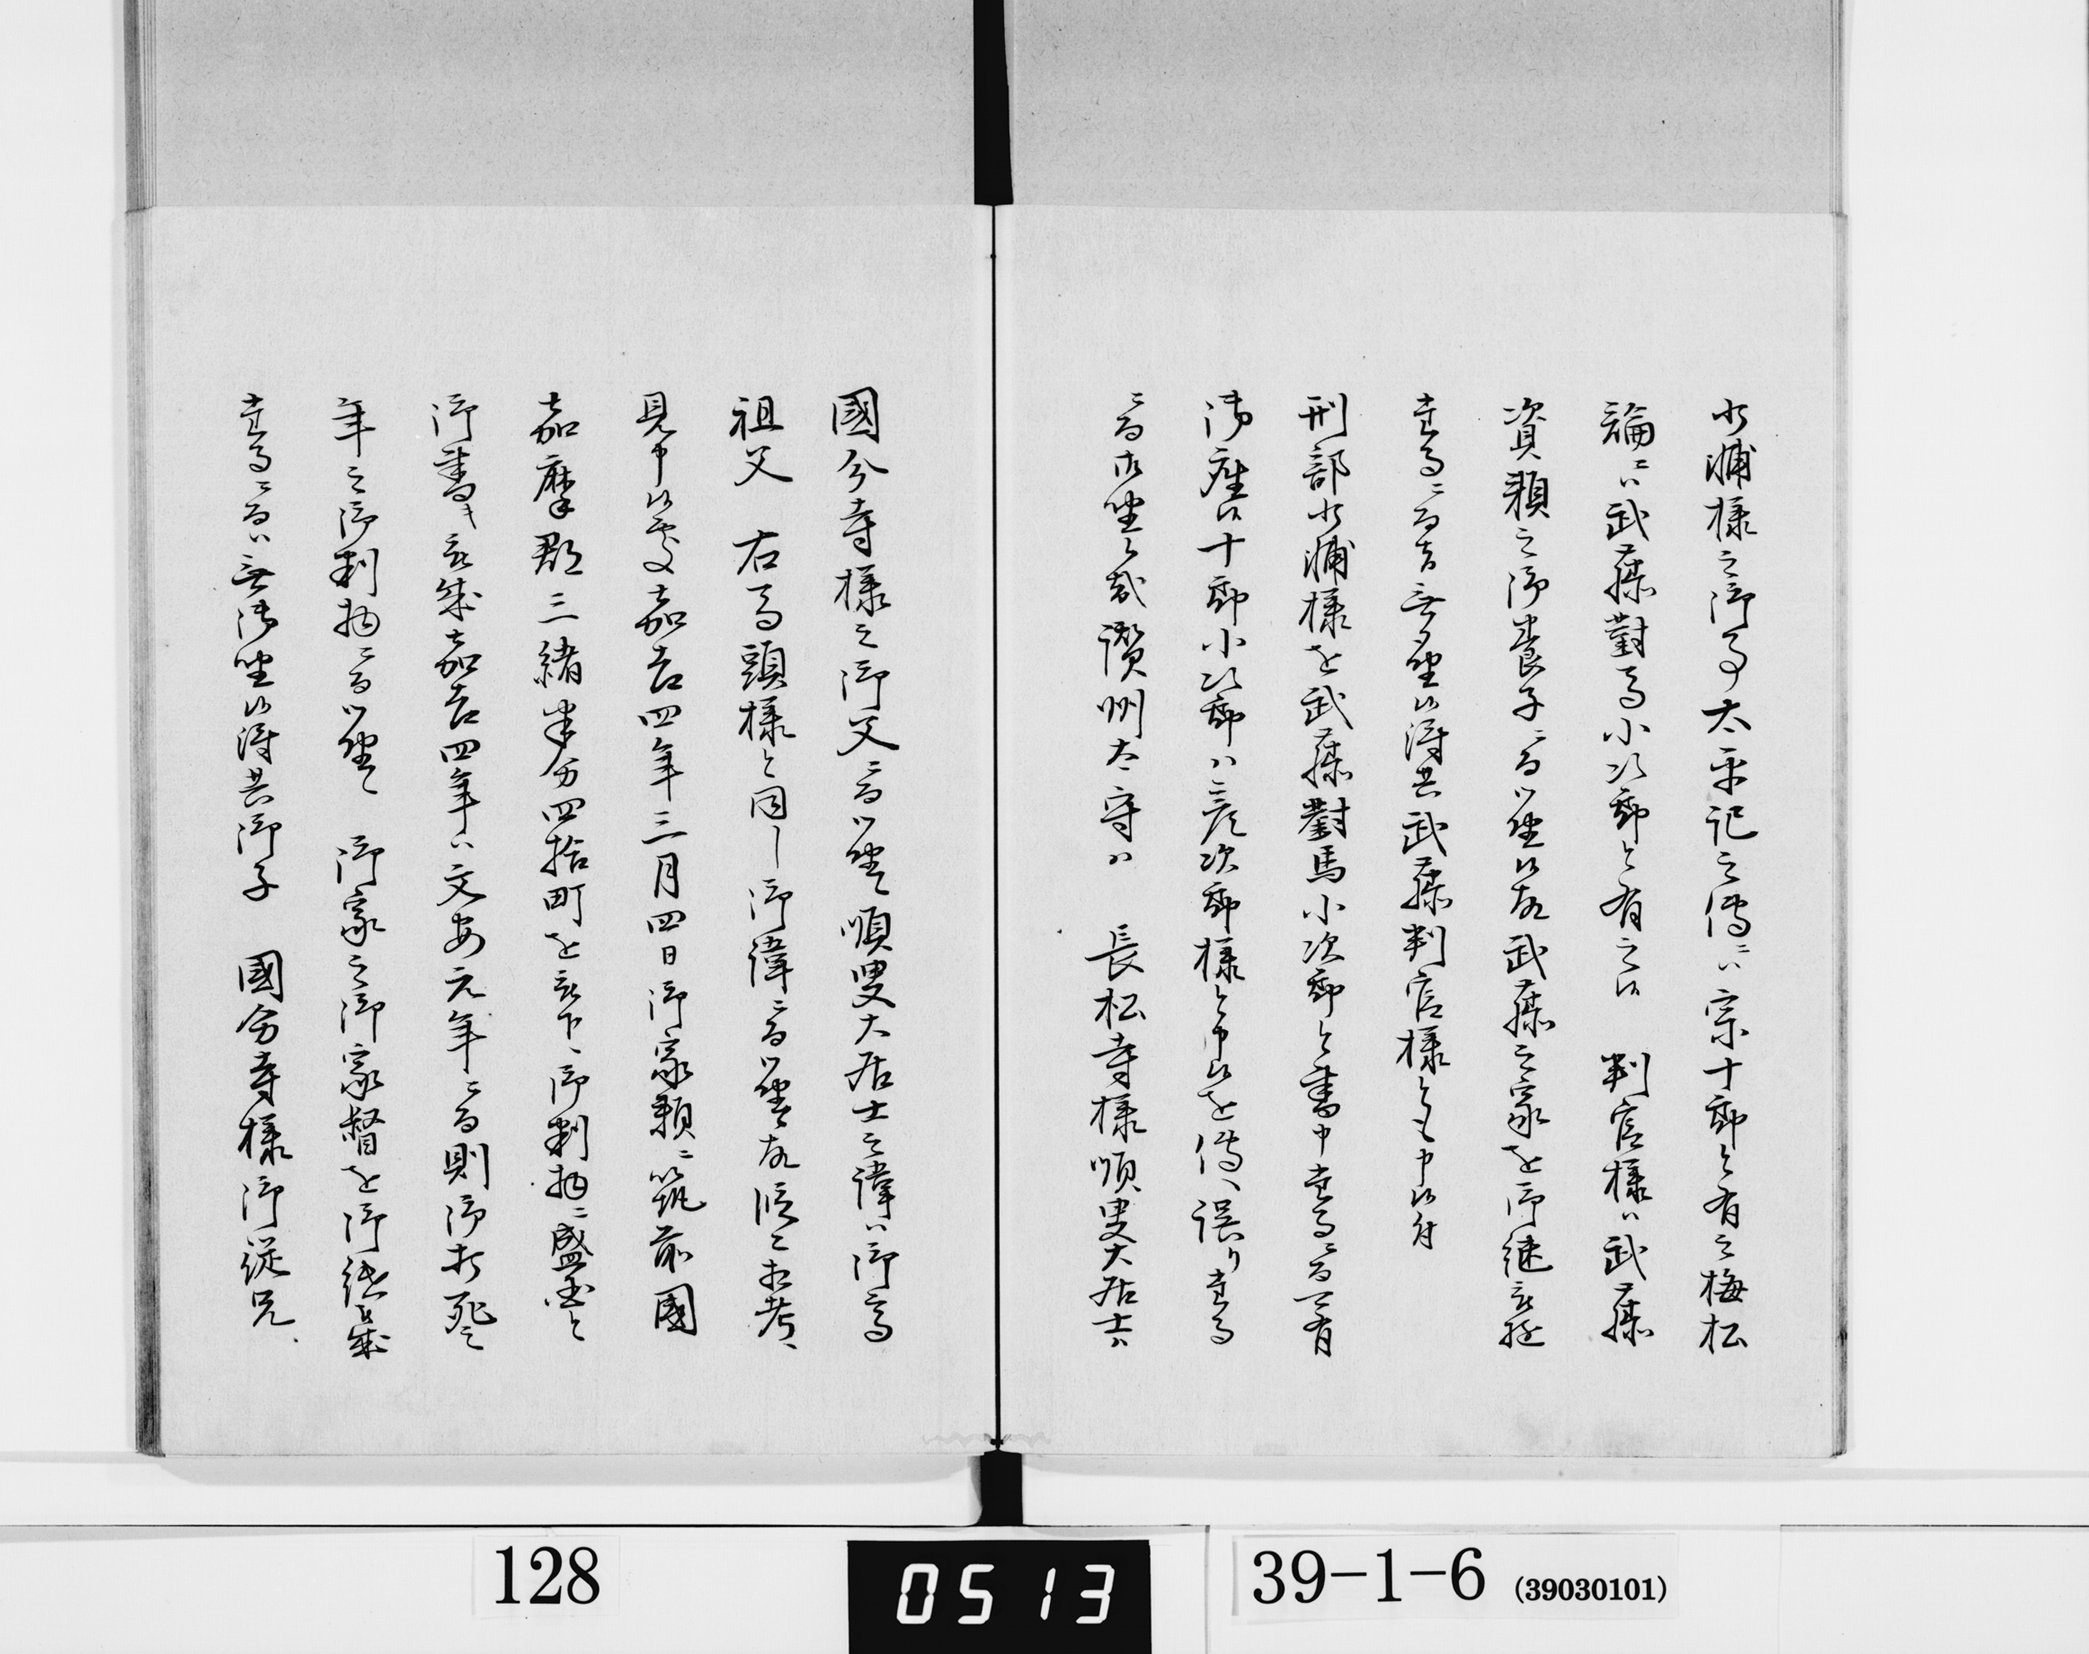 少浦様之御事太平記之伝ニハ宗十郎と有之梅松
論ニハ武藤対馬小次郎と有之候 判官様ハ武藤
資頼之御養子ニ而御坐候故武藤之家を御継被遊
事ニ而も無御坐候得共武藤判官様とも申候付
刑部少浦様を武藤對馬小次郎と書申事ニ而可有
御座候十郎小次郎ハ彦次郎様と申候を伝へ誤り事
ニ而御坐候哉讃州太守ハ 長松寺様順叟大居士ハ
國分寺様之御父ニ而御坐候順叟大居士之諱ハ御高
祖父 右馬頭様と同し御諱ニ而御坐候故後ニ相考へ
見申候處嘉吉四年三月四日御家頼ニ筑前國
嘉摩郡三緒半分四拾町を被下候御判物ニ盛国と
御書キ被成嘉吉四年ハ文安元年ニ而則御打死之
年之御判物ニ而御坐候 御家之御家督を御継被成
事ニ而ハ無御坐候得共御子 國分寺様御従兄
128
0513
39-1-6 (39030101)